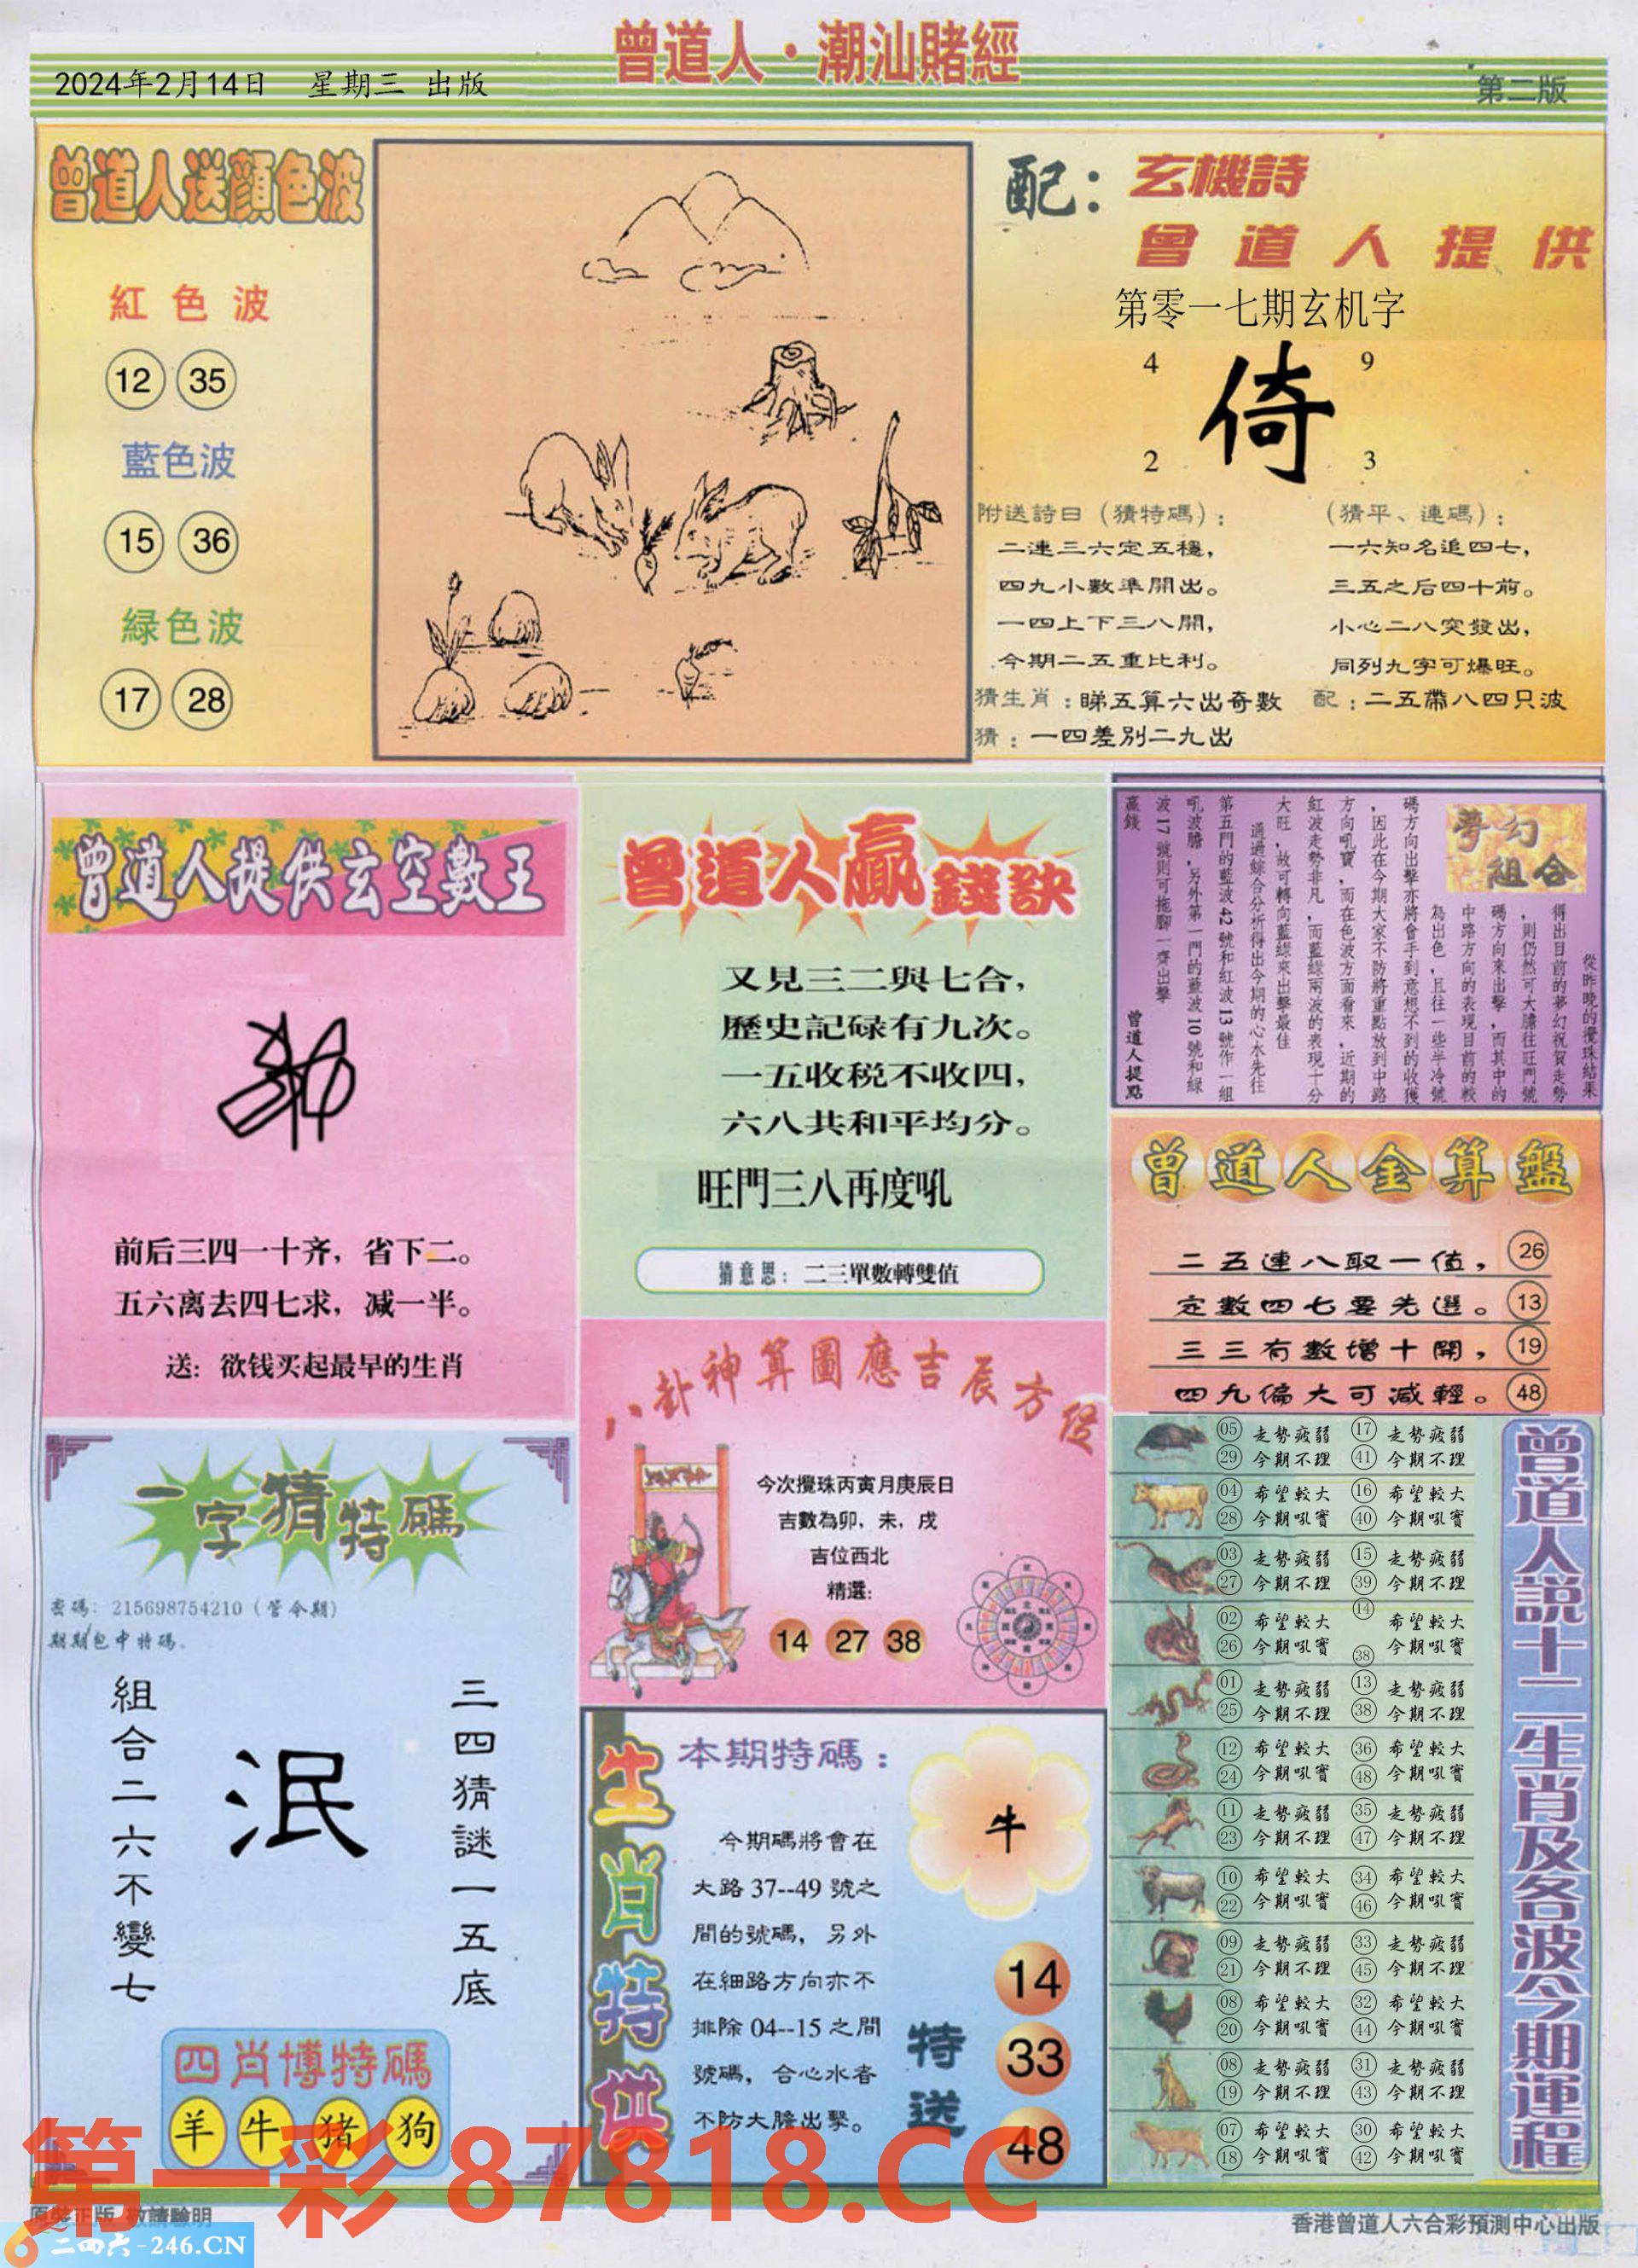 曾道人·潮汕賭經
2024年2月14日 星期三 出版
第二版
曾道人送顔色波
紅色波
12 35
藍色波
15 36
緑色波
17 28
配：玄機詩
曾道人提供
第零一七期玄机字
4 9
倚
2 3
附送詩曰（猜特碼）：
二連三六定五穩，
四九小數準開出。
一四上下三八開，
今期二五重比利。
（猜平、連碼）：
一六知名追四七，
三五之后四十前。
小心二八突發出，
同列九字可爆旺。
猜生肖：睇五算六出奇數
配：二五帶八四只波
猜：一四差別二九出
曾道人提供玄空數王
前后三四一十齐，省下二。
五六离去四七求，减一半。
送：欲钱买起最早的生肖
曾道人贏錢訣
又見三二與七合，
歷史記碌有九次。
一五收税不收四，
六八共和平均分。
旺門三八再度吼
猜意思：二三單數轉雙值
夢幻
組合
從昨晚的攪珠結果
得出目前的夢幻祝賀走勢
，則仍然可大膽往旺門號
碼方向來出擊，而其中的
中路方向的表現目前的較
為出色，且往一些半冷號
碼方向出擊亦將會手到意想不到的收獲
，因此在今期大家不防將重點放到中路
方向吼寶，而在色波方面看來，近期的
紅波走勢非凡，而藍綠兩波的表現十分
大旺，故可轉向藍綠來出擊最佳
通過綜合分析得出今期的心水先往
第五門的藍波42號和紅波13號作一組
吼波膽，另外第一門的藍波10號和綠
波17號則可拖腳一齊出擊
贏錢
曾道人提點
曾道人金算盤
二五連八取一值， 26
定數四七要先選。 13
三三有數增十開， 19
四九偏大可減輕。 48
八卦神算圖應吉辰方位
今次攪珠丙寅月庚辰日
吉數為卯，未，戌
吉位西北
精選：
14 27 38
一字猜特碼
密碼：215698754210（管令期）
期期包中特碼。
三四猜謎一五底
泯
組合二六不變七
四肖博特碼
羊 牛 猪 狗
生肖特供
本期特碼：
牛
今期碼將會在
大路37--49號之
間的號碼，另外
在細路方向亦不
排除04--15之間
號碼，合心水者
不防大膽出擊。
特送
14
33
48
曾道人說十二生肖及各波今期運程
05 走勢疲弱 17 走勢疲弱
29 今期不理 41 今期不理
04 希望較大 16 希望較大
28 今期吼實 40 今期吼實
03 走勢疲弱 15 走勢疲弱
27 今期不理 39 今期不理
02 希望較大 14 希望較大
26 今期吼實 38 今期吼實
01 走勢疲弱 13 走勢疲弱
25 今期不理 38 今期不理
12 希望較大 36 希望較大
24 今期吼實 48 今期吼實
11 走勢疲弱 35 走勢疲弱
23 今期不理 47 今期不理
10 希望較大 34 希望較大
22 今期吼實 46 今期吼實
09 走勢疲弱 33 走勢疲弱
21 今期不理 45 今期不理
08 希望較大 32 希望較大
20 今期吼實 44 今期吼實
08 走勢疲弱 31 走勢疲弱
19 今期不理 43 今期不理
07 希望較大 30 希望較大
18 今期吼實 42 今期吼實
第一彩 87818.CC
原裝正版 敬請驗明
二四六-246.CN
香港曾道人六合彩預測中心出版